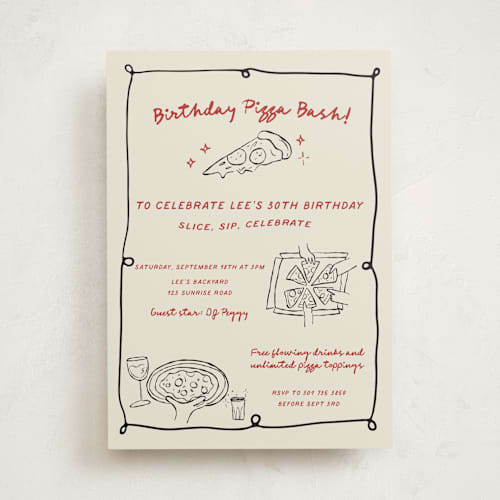 Birthday Pizza Bash!
TO CELEBRATE LEE'S 30TH BIRTHDAY
SLICE, SIP, CELEBRATE
SATURDAY, SEPTEMBER 18TH AT 3PM
LEE'S BACKYARD
123 SUNRISE ROAD
Guest star: DJ Peggy
Free flowing drinks and
unlimited pizza toppings
RSVP TO 309 735 3859
BEFORE SEPT 3RD